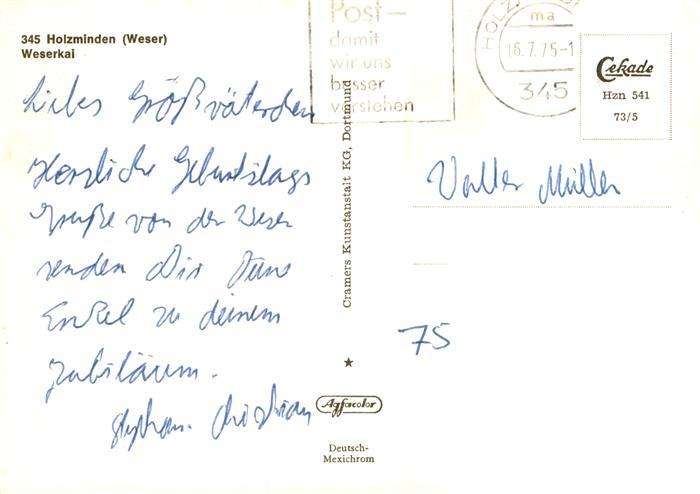 345 Holzminden (Weser)
Weserkai
Post-
damit
wir uns
besser
verstehen
HOLZ
ma
16.7.75-1
345
Cekade
Hzn 541
73/5
Liebes Großväterchen
Herzliche Geburtstags
Grüße von der Weser
senden Dir Deine
Enkel zu deinem
Jubiläum.
Stephan. Christian
Cramers Kunstanstalt KG, Dortmund
Agfacolor
Deutsch-
Mexichrom
Müller
75